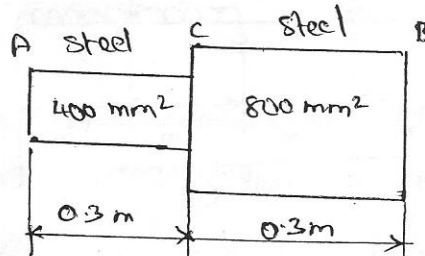 A steel C steel B
400 mm² 800 mm²
0.3m 0.3m